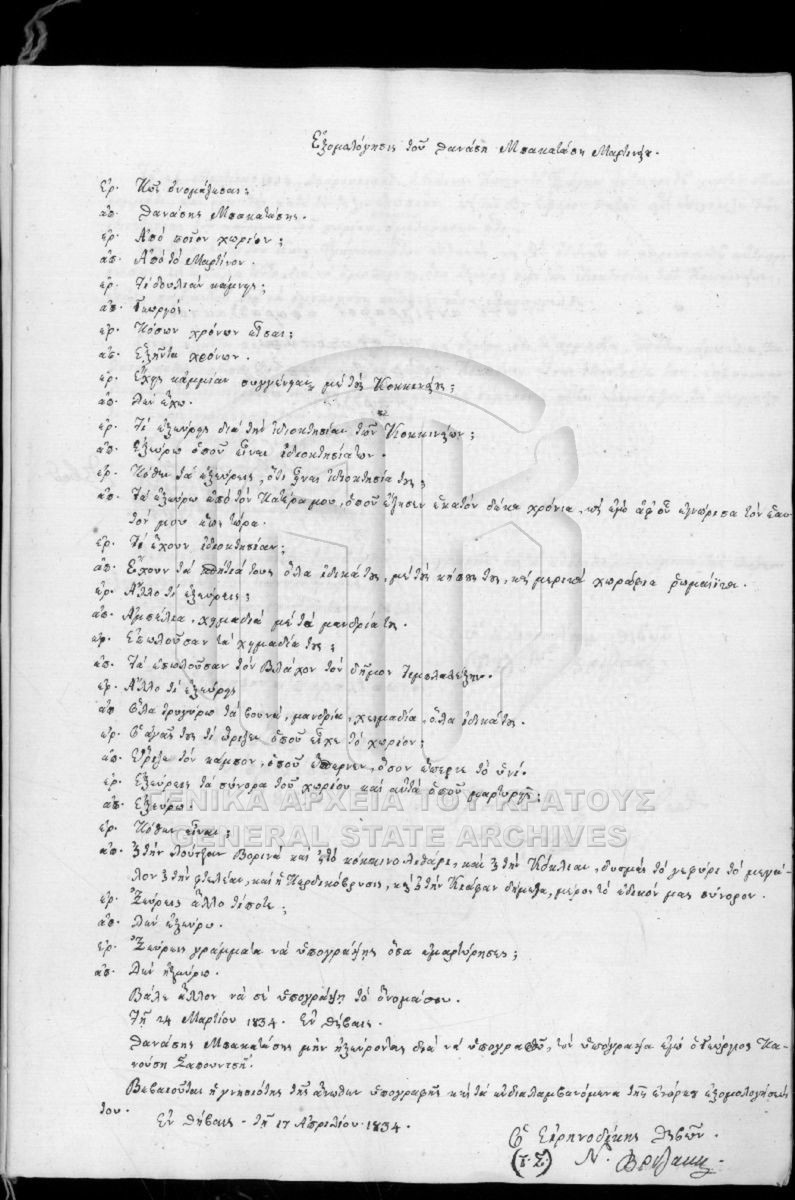 Ἐξομολόγησις τοῦ Θανάση Μπακατάση Μαρτινέου.
ἐρ. Πῶς ὀνομάζεσαι;
ἀπ. Θανάσης Μπακατάσης.
ἐρ. Ἀπό ποῖον χωρίον;
ἀπ. Ἀπό τό Μαρτίνον.
ἐρ. Τί δουλιάν κάμνεις;
ἀπ. Γεωργός
ἐρ. Πόσων χρόνων εἶσαι;
ἀπ. Ἑξῆντα χρόνων.
ἐρ. Ἔχεις καμμίαν συγγένειαν μέ τούς Κοκκινέους;
ἀπ. Δέν ἔχω.
ἐρ. Τί ἐξεύρεις διά τήν ἰδιοκτησίαν τῶν Κοκκινέων;
ἀπ. Ἐξεύρω ὁποῦ εἶναι ἰδιοκτησία των.
ἐρ. Πόθεν τά ἐξεύρεις, ὅτι εἶναι ἰδιοκτησία τους;
ἀπ. Τά ἐξεύρω ἀπό τόν Πατέρα μου, ὁποῦ ἔζησεν ἑκατόν δέκα χρόνια, καί ἐγώ ἀφ' οὗ ἐγνώρισα τόν ἑαυ-
τόν μου ἕως τώρα.
ἐρ. Τί ἔχουν ἰδιοκτησίαν;
ἀπ. Ἔχουν τά σπήτιά τους ὅλα ἰδικά τους, μέ τούς κήπους τους, καί μερικά χωράφια ῥωμαίϊκα.
ἐρ. Ἄλλο τί ἐξεύρεις;
ἀπ. Ἀμπέλια, χειμαδιά μέ τά μανδριά τους.
ἐρ. Ἐπωλοῦσαν τά χειμαδία τους;
ἀπ. Τά ἐπωλοῦσαν τόν Βλάχον τόν δῆμον
ἐρ. Ἄλλο τί ἐξεύρεις
ἀπ. Ὅλα τρυγύρω τά βουνά, μανδριά, χειμαδιά, ὅλα ἰδικά τους.
ἐρ. Ὁ ἀγᾶς τους τί ὥριζεν ὁποῦ εἶχε τό χωρίον;
ἀπ. Ὥριζε τόν κάμπον, ὁποῦ ἔσπερνεν, ὅσον ἔπερνε τό ὑνί.
ἐρ. Ἐξεύρεις τά σύνορα τοῦ χωρίου καί αὐτά ὁποῦ μαρτυρεῖς;
ἀπ. Ἐξεύρω.
ἐρ. Πόθεν εἶναι;
ἀπ. Στήν Λούτζαν Βορινά καί στό κόκκινο λιθάρι, καί στήν Κόκλιαν, δυσμάς τό γεφύρι τό μεγά-
λον στήν φτελέαν, καί ἡ Περδικόβρυσις, καί στήν Κιάφαν μέρος τό ἰδικόν μας σύνορον.
ἐρ. Ἐξεύρεις ἄλλο τίποτε;
ἀπ. Δέν ἐξεύρω.
ἐρ. Ἐξεύρεις γράμματα νά ὑπογράψῃς ὅσα ἐμαρτύρησες;
ἀπ. Δέν ἠξεύρω.
Βάλε ἄλλον νά σέ ὑπογράψῃ τό ὄνομά σου.
Τῇ 24 Μαρτίου 1834. Ἐν Θήβαις.
Θανάσης Μπακατάσης μήν ἠξεύροντας διά νά ὑπογραφῶ, τόν ὑπόγραψα ἐγώ ὁ Γεώργιος Πα-
νούση Σαπουντζῆ.
Βεβαιοῦται ἡ γνησιότης τῆς ἄνωθεν ὑπογραφῆς καί τά ἐνδιαλαμβανόμενα τῆς ἐνόρκου ἐξομολογήσεώς
του. Ἐν Θήβαις τῇ 17 Ἀπριλίου 1834.
Ὁ Εἰρηνοδίκης Θηβῶν.
(Τ.Σ.) Ν.
ΓΕΝΙΚΑ ΑΡΧΕΙΑ ΤΟΥ ΚΡΑΤΟΥΣ
GENERAL STATE ARCHIVES